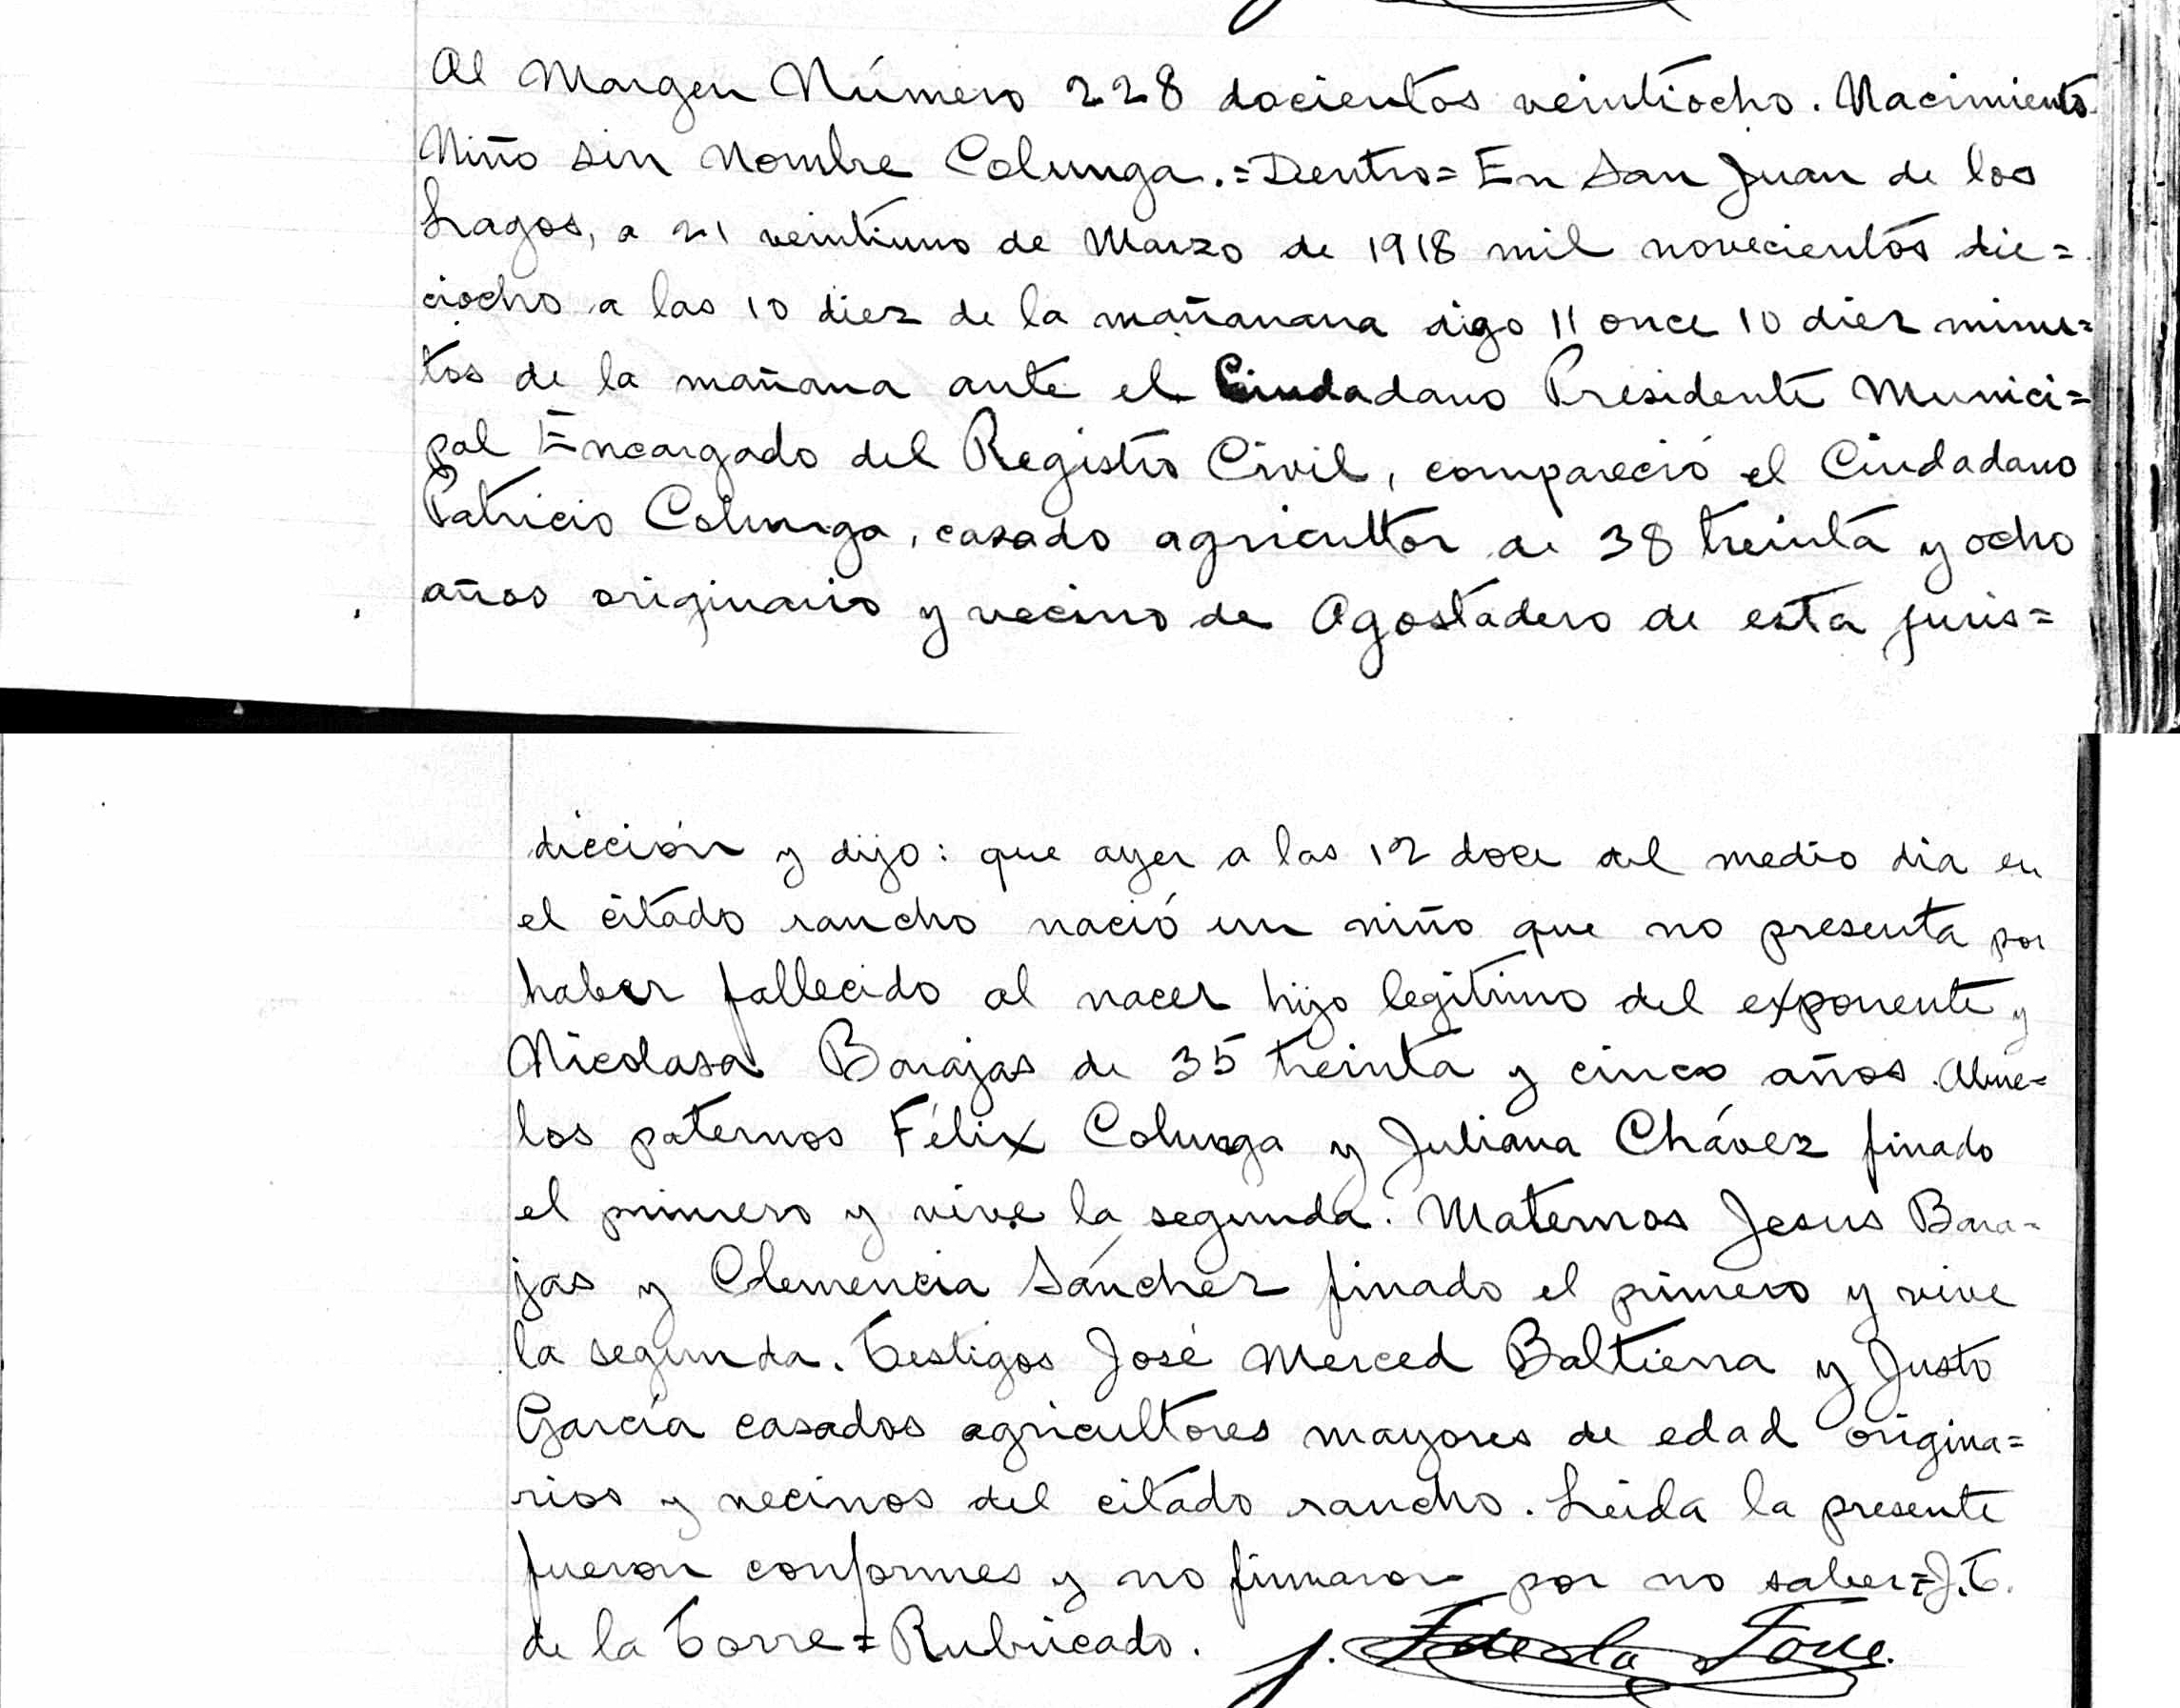 Al Margen Número 228 docientos veintiocho. Nacimiento
Niño sin Nombre Colunga.=Dentro= En San Juan de los
Lagos, a 21 veintiuno de Marzo de 1918 mil novecientos die=
ciocho a las 10 diez de la mañanana digo 11 once 10 diez minu=
tos de la mañana ante el Ciudadano Presidente Munici=
pal Encargado del Registro Civil, compareció el Ciudadano
Patricio Colunga, casado agricultor de 38 treinta y ocho
años originario y vecino de Agostadero de esta juris=
dicción y dijo: que ayer a las 12 doce del medio dia en
el citado rancho nació un niño que no presenta por
haber fallecido al nacer hijo legitimo del exponente y
Nicolasa Barajas de 35 treinta y cinco años. Abue=
los paternos Félix Colunga y Juliana Chávez finado
el primero y vive la segunda. Maternos Jesus Bara=
jas y Clemencia Sánchez finado el primero y vive
la segunda. Testigos José Merced Baltierra y Justo
García casados agricultores mayores de edad origina=
rios y vecinos del citado rancho. Leida la presente
fueron conformes y no firmaron por no saber=J.T.
de la Torre=Rubricado. J. T de la Torre.